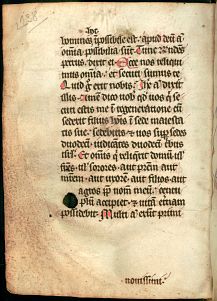 hoc
homines īpossibile est · apud deū aū
omīa possibilia sūt Tunc rñdēs
petrus dixit ei Ecce nos reliqui
mus omīa · et secuti sumus te
Quid g̊ erit nobis · Ih̄c aū dixit
illis · Amē dico vob q̊d vos q̇ se
cuti estis me ī regeneratione cū
sederit filius hōis ī sede maiesta
tis sue · sedebitis et vos sup sedes
duodecī · iudicātes duodecī tbus
isrl Et omīs q̇ reliq̇rit domū ul̄
frēs ul̄ sorores · aut prēm aut
mrēm aut uxorē · aut filios aut
agros pp̄ nom̄ meū · centu
plū accipiet · et vitā et̄nam
possidebit · Multi aū erūt primi
novissimi ·